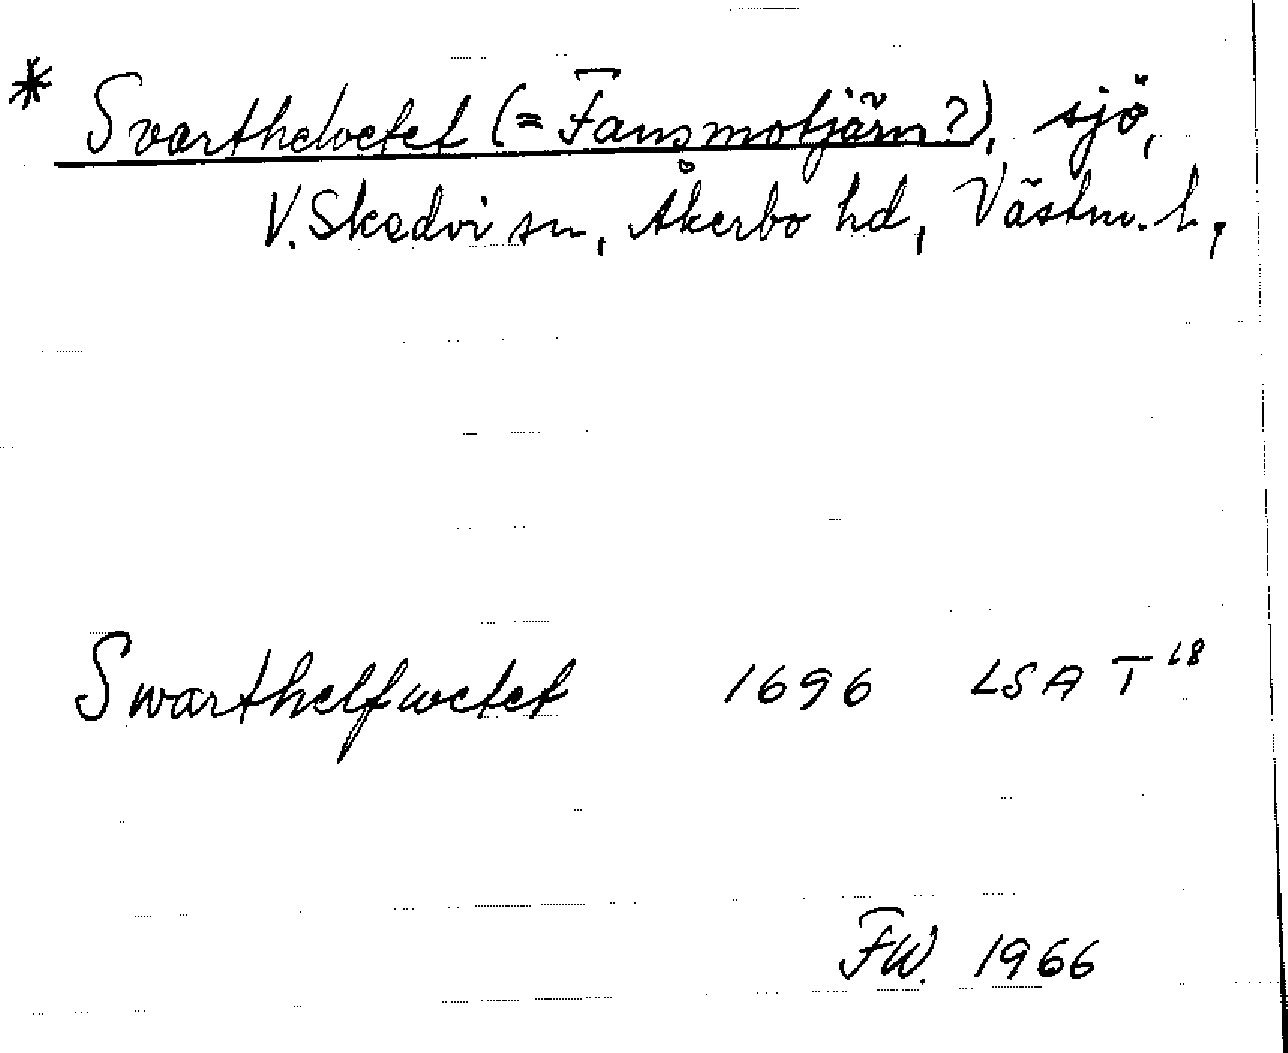 * Svarthelvetet (= Fansmotjärn?), sjö,
V. Skedvi sn, Åkerbo hd, Västm. l,
Swarthelfwetet 1696 LSA T 18
FW. 1966